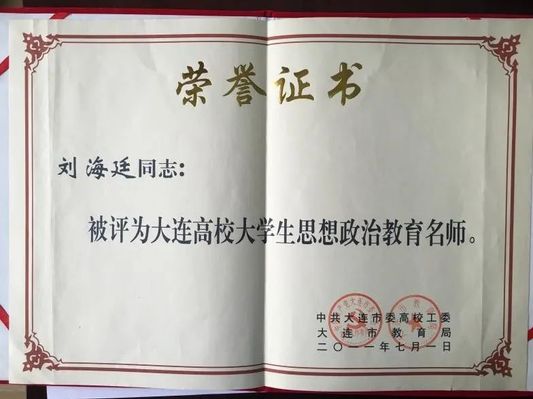 荣誉证书
刘海廷同志：
被评为大连高校大学生思想政治教育名师。
中共大连市委高校工委
大连市教育局
二〇一一年七月一日